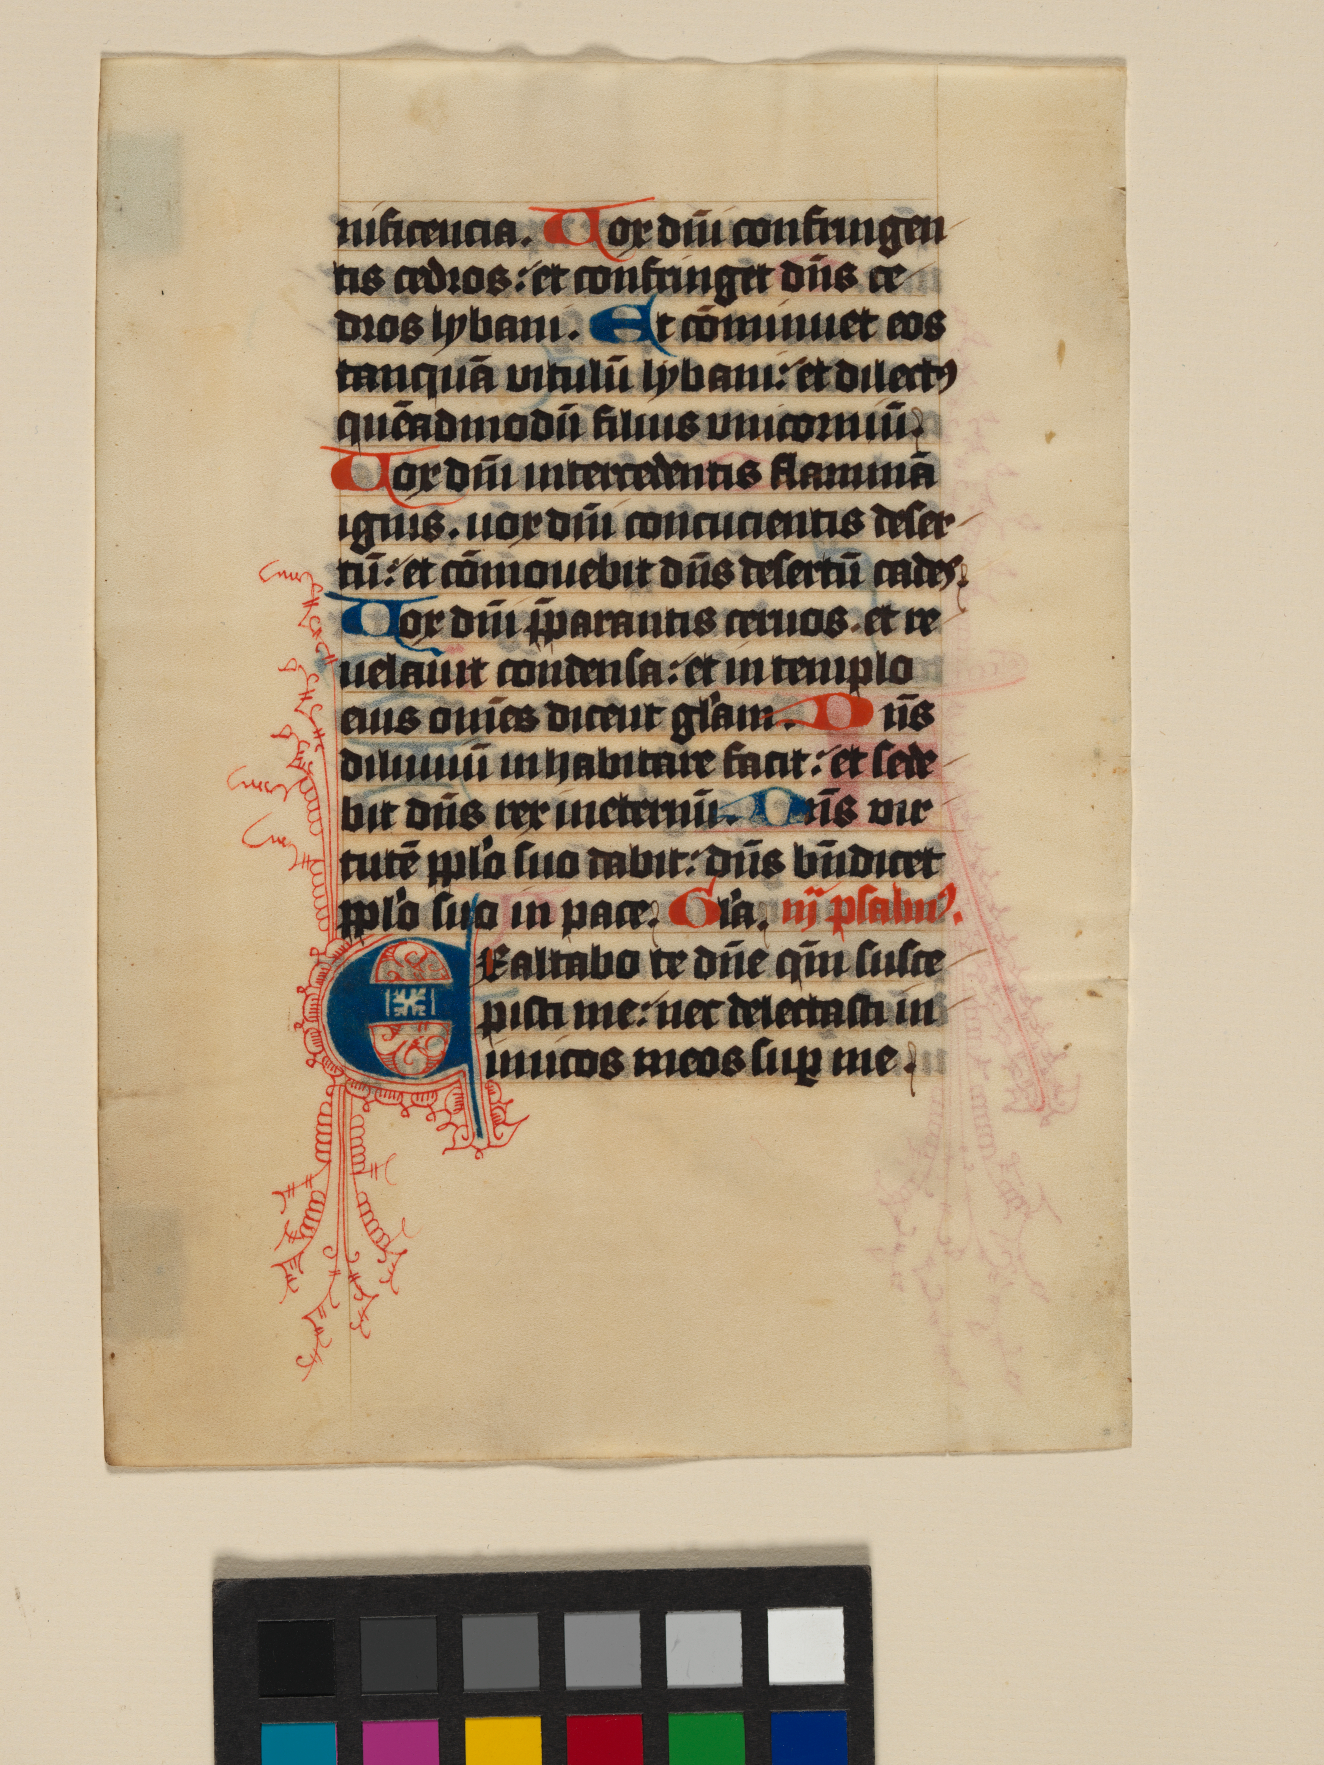 nificencia. Uox dñi confringen
tis cedros: et confringet dñs ce
dros lybani. Et cōminuet eos
tanquā vitulū lybani: et dilectꝰ
quēadmodū filius vnicorniū.
Uox dñi intercedentis flammā
ignis. uox dñi concucientis deser
tū: et cōmouebit dñs desertū cades.
Uox dñi p̄parantis ceruos. et re
uelauit condensa: et in templo
eius omēs dicent gl'am. Dñs
diluuiū inhabitare facit: et sede
bit dñs rex ineternū. Dñs vir
tutē ppl'o suo dabit: dñs bñdicet
ppl'o suo in pace. Gl'a. iij psalmꝰ.
Exaltabo te dñe qm̄ susce
pisti me: nec delectasti in
imicos meos suꝑ me.